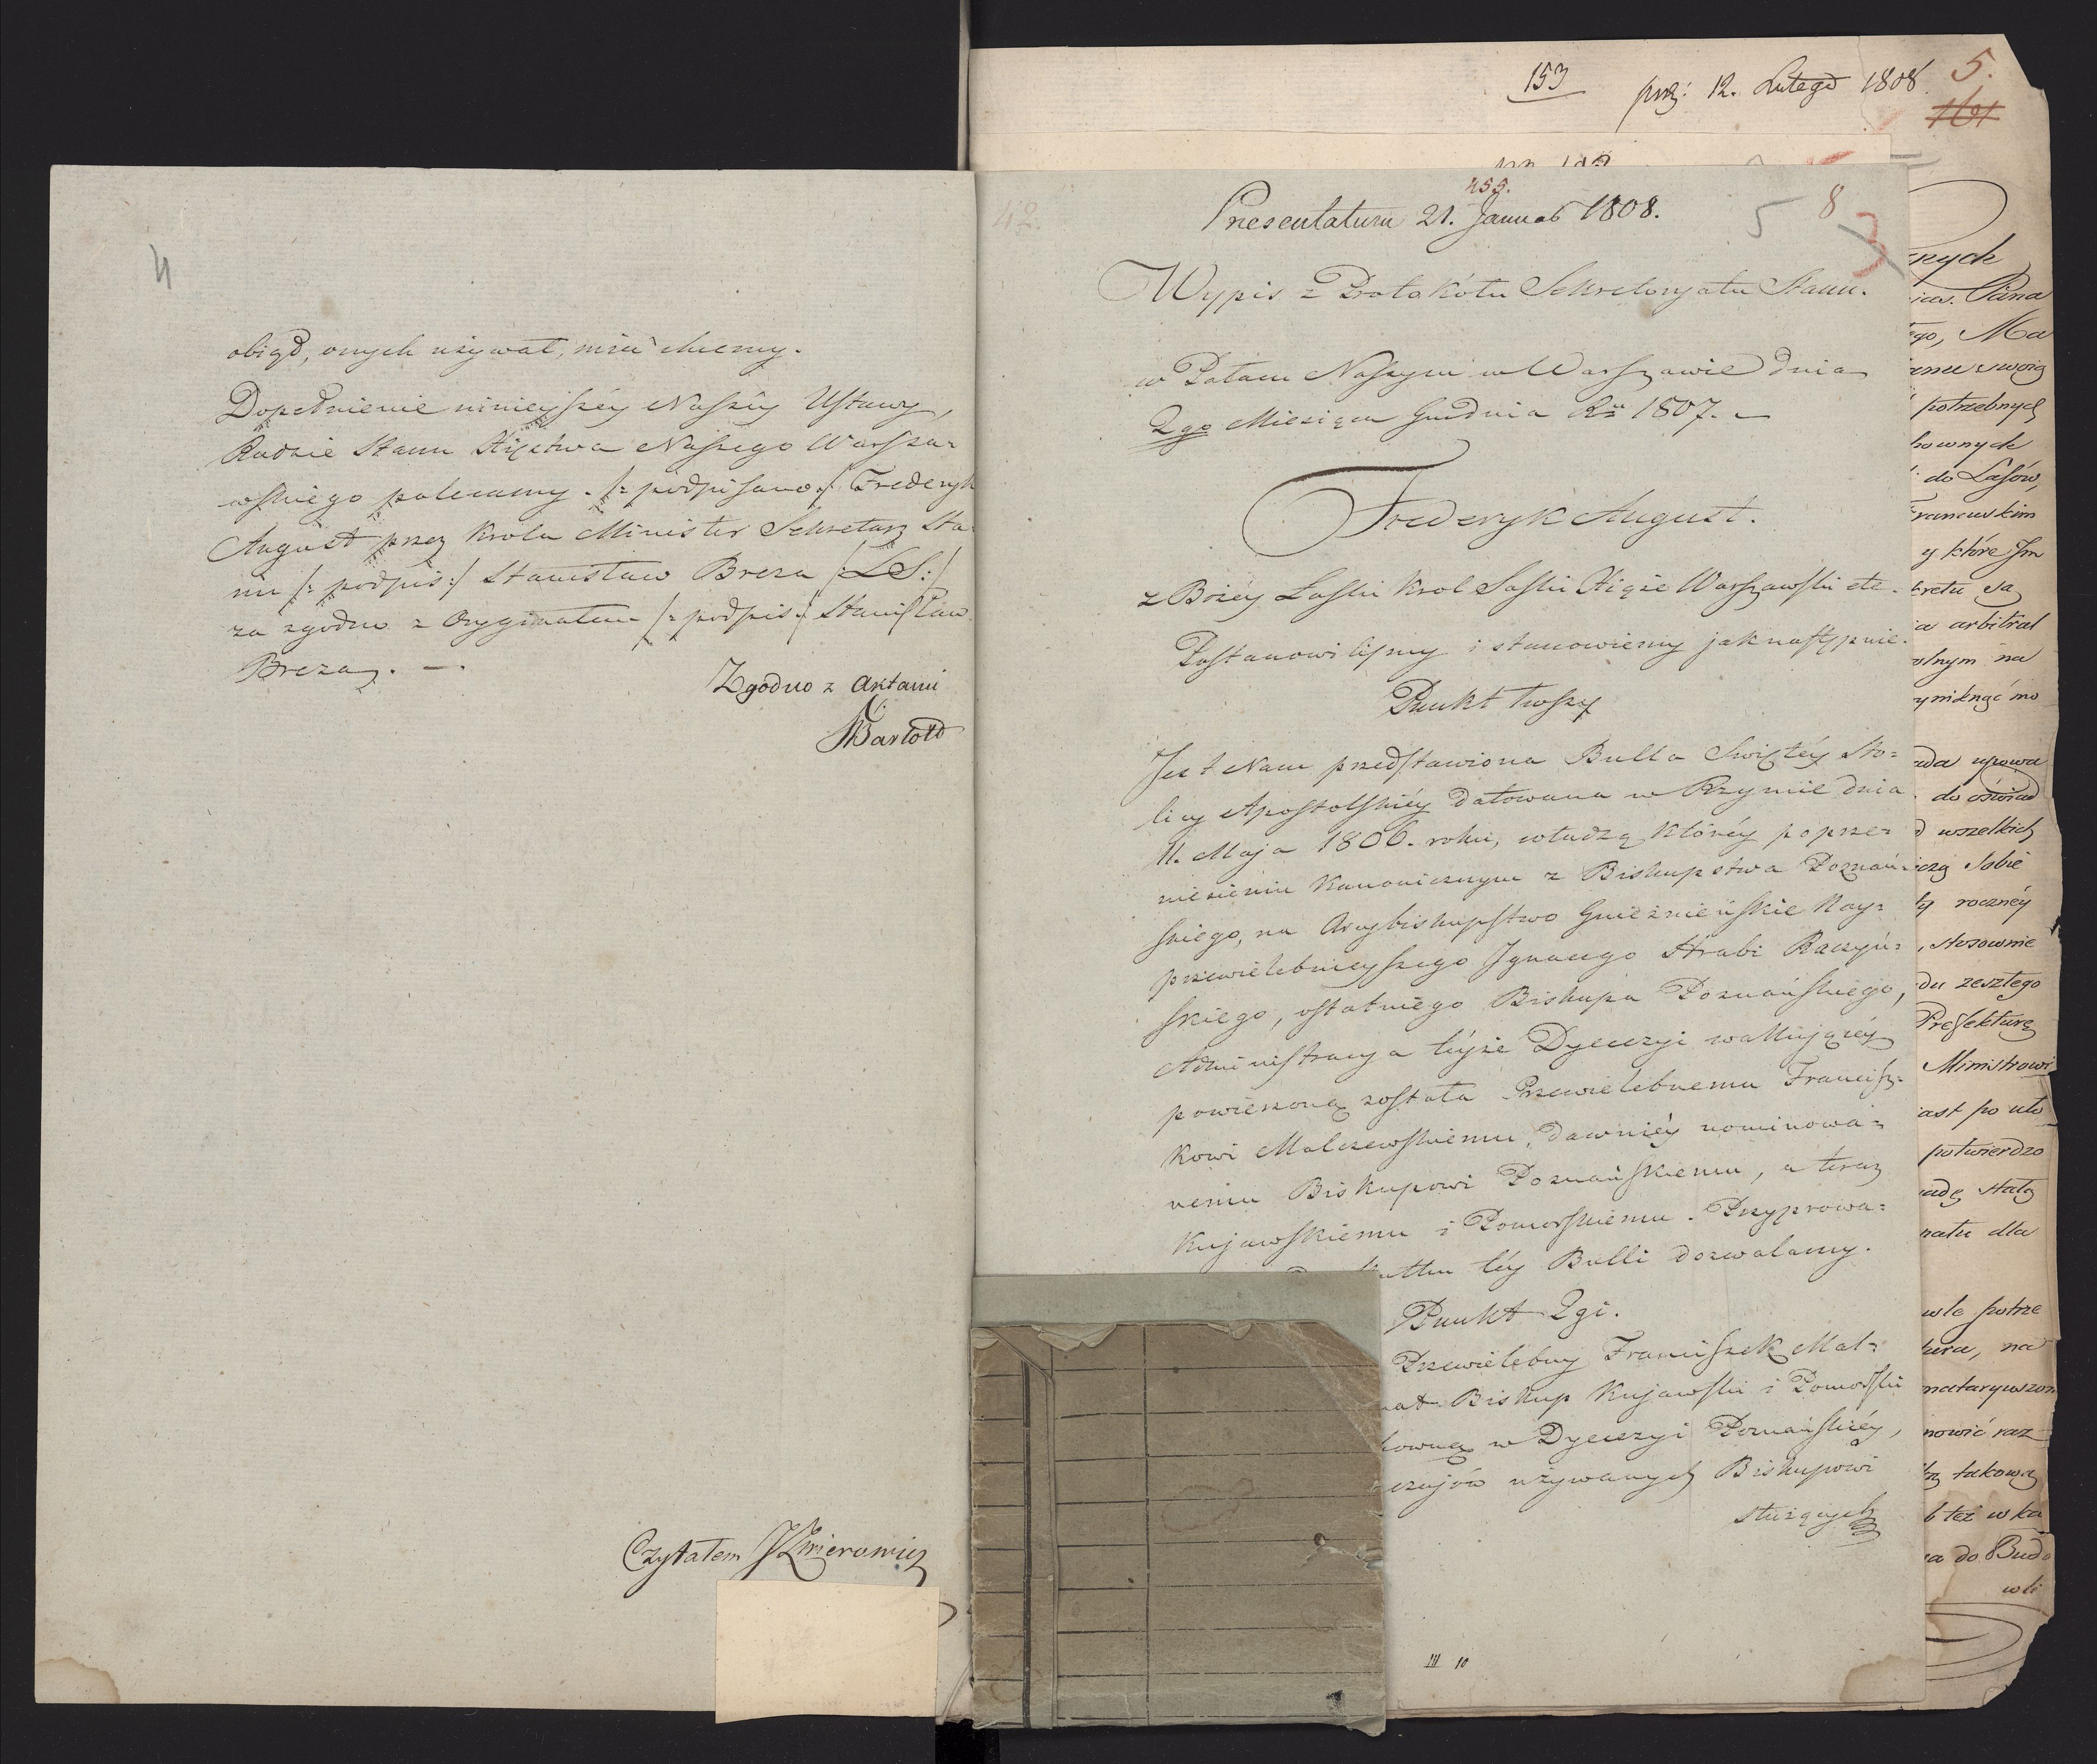 4
obiąd, onych używał, mieć chcemy.
Dopełnienie ninieyszéy Naszéy Ustawy,
Radzie Stanu Xięstwa Naszego Warsza=
wskiego polecamy. /: podpisano :/ Fryderyk
August przez Krola Minister Sekretarz Sta=
nu /: podpis :/ Stanisław Breza /: LS :/
za zgodne z Oryginałem /: podpis :/ Stanisław
Breza. —.
Zgodno z Aktami
Czytałem
153
prez: 12. Lutego 1808.
5.
161
42.
455.
Presentatum 21. Januar 1808.
5 8
3
Wypis z Protokółu Sekretaryatu Stanu.
w Pałacu Naszym w Warszawie dnia
2go Miesiąca Grudnia Ru 1807. —
Frederyk August.
z Bożéy Łaski Krol Saski Xiąże Warszawski etc.
Postanowiliśmy i stanowiemy jak następuie.
Punkt 1wszy
Jest Nam przedstawiona Bulla Swiętéy Sto=
licy Apostolskiéy datowana w Rzymie dnia
11. Maja 1806. roku, władzą któréy po prze=
niesieniu kanonicznym z Biskupstwa Poznań=
skiego, na Arcybiskupstwo Gnieźnieńskie Nay=
przewielebnieyszego Ignacego Hrabi Raczyń=
skiego, ostatniego Biskupa Poznańskiego,
Administracya téyże Dyecezyi wakującéy
powierzoną została Przewielebnemu Francisz=
kowi Malczewskiemu, dawniéy nominowa=
nemu Biskupowi Poznańskiemu, a teraz
Kujawskiemu i Pomorskiemu. Przyprowa=
skutku téy Bulli dozwalamy.
Punkt 2gi.
Przewielebny Franciszek Mal=
nat Biskup Kujawski i Pomorski
howną w Dyecezyi Poznańskiéy,
czajów używanych Biskupowi
służących
III 10
znych
Pana
ego, Ma
swoią
potrzebnych
hownych
do Lasów,
Francuskim
y które Im
kretu są
ia arbitral
olnym na
ymknąć mo
ada upowa
do oświad
d wszelkich
iczą Sobie
ty roczney
, stosownie
du zeszłego
Prefekturę
Ministrowi
iast po uło
potwierdzo
adę stałą
natu dla
wle potrze
tura, na
mataryuszom
nowić raz
takową
b też w ka
ia do Budo
wli